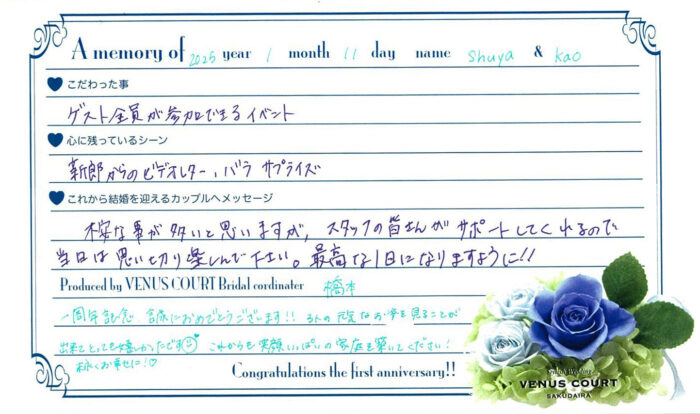 A memory of 2025 year 1 month 11 day name shuya & kao
こだわった事
ゲスト全員が参加できるイベント
心に残っているシーン
新郎からのビデオレター、バラ サプライズ
これから結婚を迎えるカップルへメッセージ
不安な事が多いと思いますが、スタッフの皆さんがサポートしてくれるので
当日は思い切り楽しんで下さい。最高な1日になりますように!!
Produced by VENUS COURT Bridal cordinater 橋本
一周年記念 誠におめでとうございます!! 3人の元気なお姿を見ることが
出来てとっても嬉しかったです これからも笑顔いっぱいの家庭を築いてください!
末永くお幸せに!♡
Congratulations the first anniversary!!
VENUS COURT
SAKUDAIRA